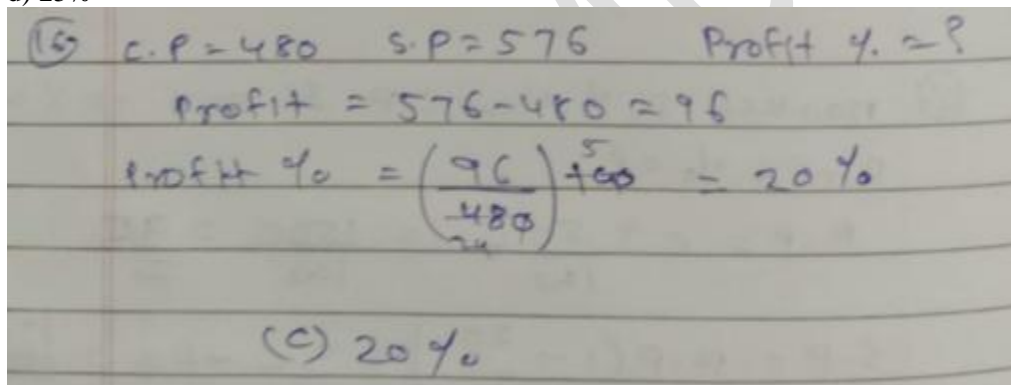 d) 25%
(16) C.P = 480 S.P = 576 Profit % = ?
Profit = 576 - 480 = 96
Profit % = (96/480) 100 5 = 20%
24
(C) 20%